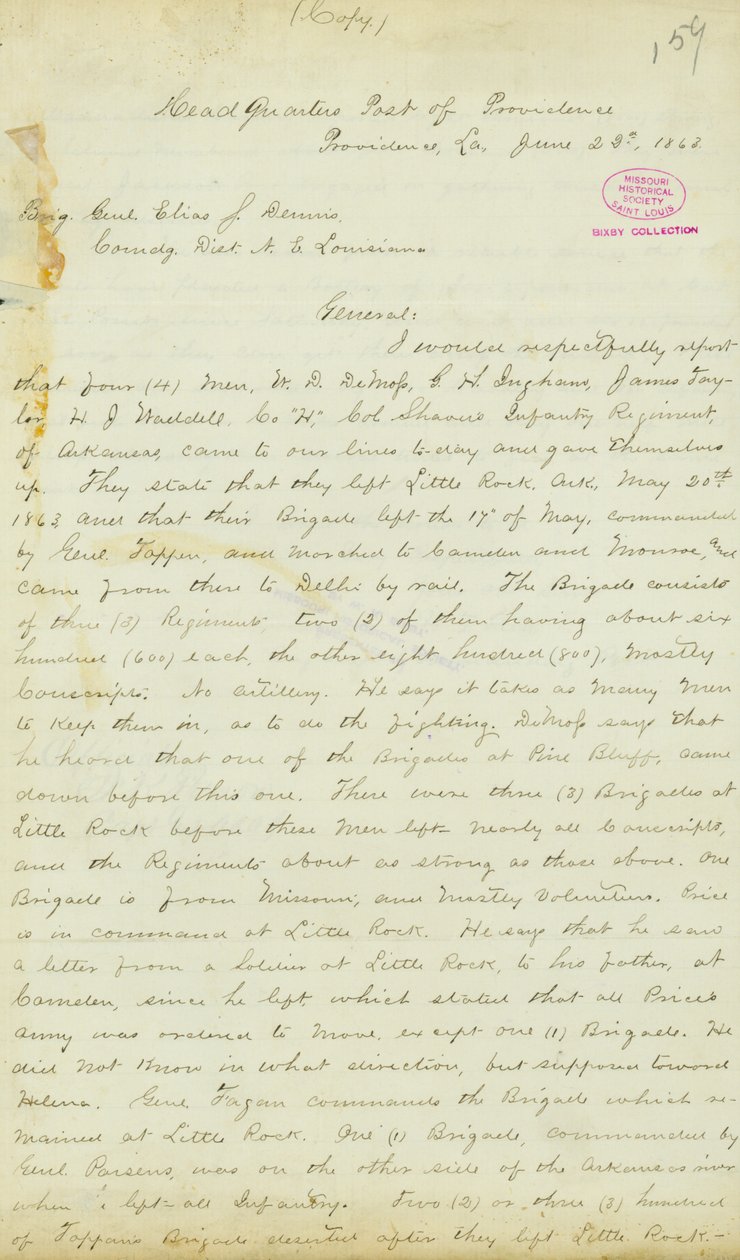 (Copy.)
159
Head Quarters Post of Providence
Providence, La., June 22nd, 1863.
MISSOURI
HISTORICAL
SOCIETY
SAINT LOUIS
BIXBY COLLECTION
Brig. Genl. Elias S. Dennis,
Comdg. Dist. N. E. Louisiana
General:
I would respectfully report
that four (4) men, W. D. DeMoss, G. H. Ingham, James Tay-
lor, H. J Waddell, Co "H," Col Shavers Infantry Regiment,
of Arkansas, came to our lines to-day and gave themselves
up. They state that they left Little Rock, Ark., May 20th
1863, and that their Brigade left the 17" of May, commanded
by Genl. Tappen, and marched to Camden and Monroe, and
came from there to Delhi by rail. The Brigade consists
of three (3) Regiments, two (2) of them having about six
hundred (600) each, the other eight hundred (800), mostly
Conscripts. No artillery. He says it takes as many men
to keep them in, as to do the fighting. DeMoss says that
he heard that one of the Brigades at Pine Bluff, came
down before this one. There were three (3) Brigades at
Little Rock before these men left – nearly all Conscripts,
and the Regiments about as strong as those above. One
Brigade is from Missouri, and mostly Volunteers. Price
is in command at Little Rock. He says that he saw
a letter from a Soldier at Little Rock, to his father, at
Camden, since he left, which stated that all Prices
army was ordered to move, except one (1) Brigade. He
did not know in what direction, but supposed toward
Helena. Genl. Fagan commands the Brigade which re-
mained at Little Rock. One (1) Brigade, commanded by
Genl. Parsens, was on the other side of the Arkansas river
when left – all Infantry. Two (2) or three (3) hundred
of Tappans Brigade deserted after they left Little Rock. –